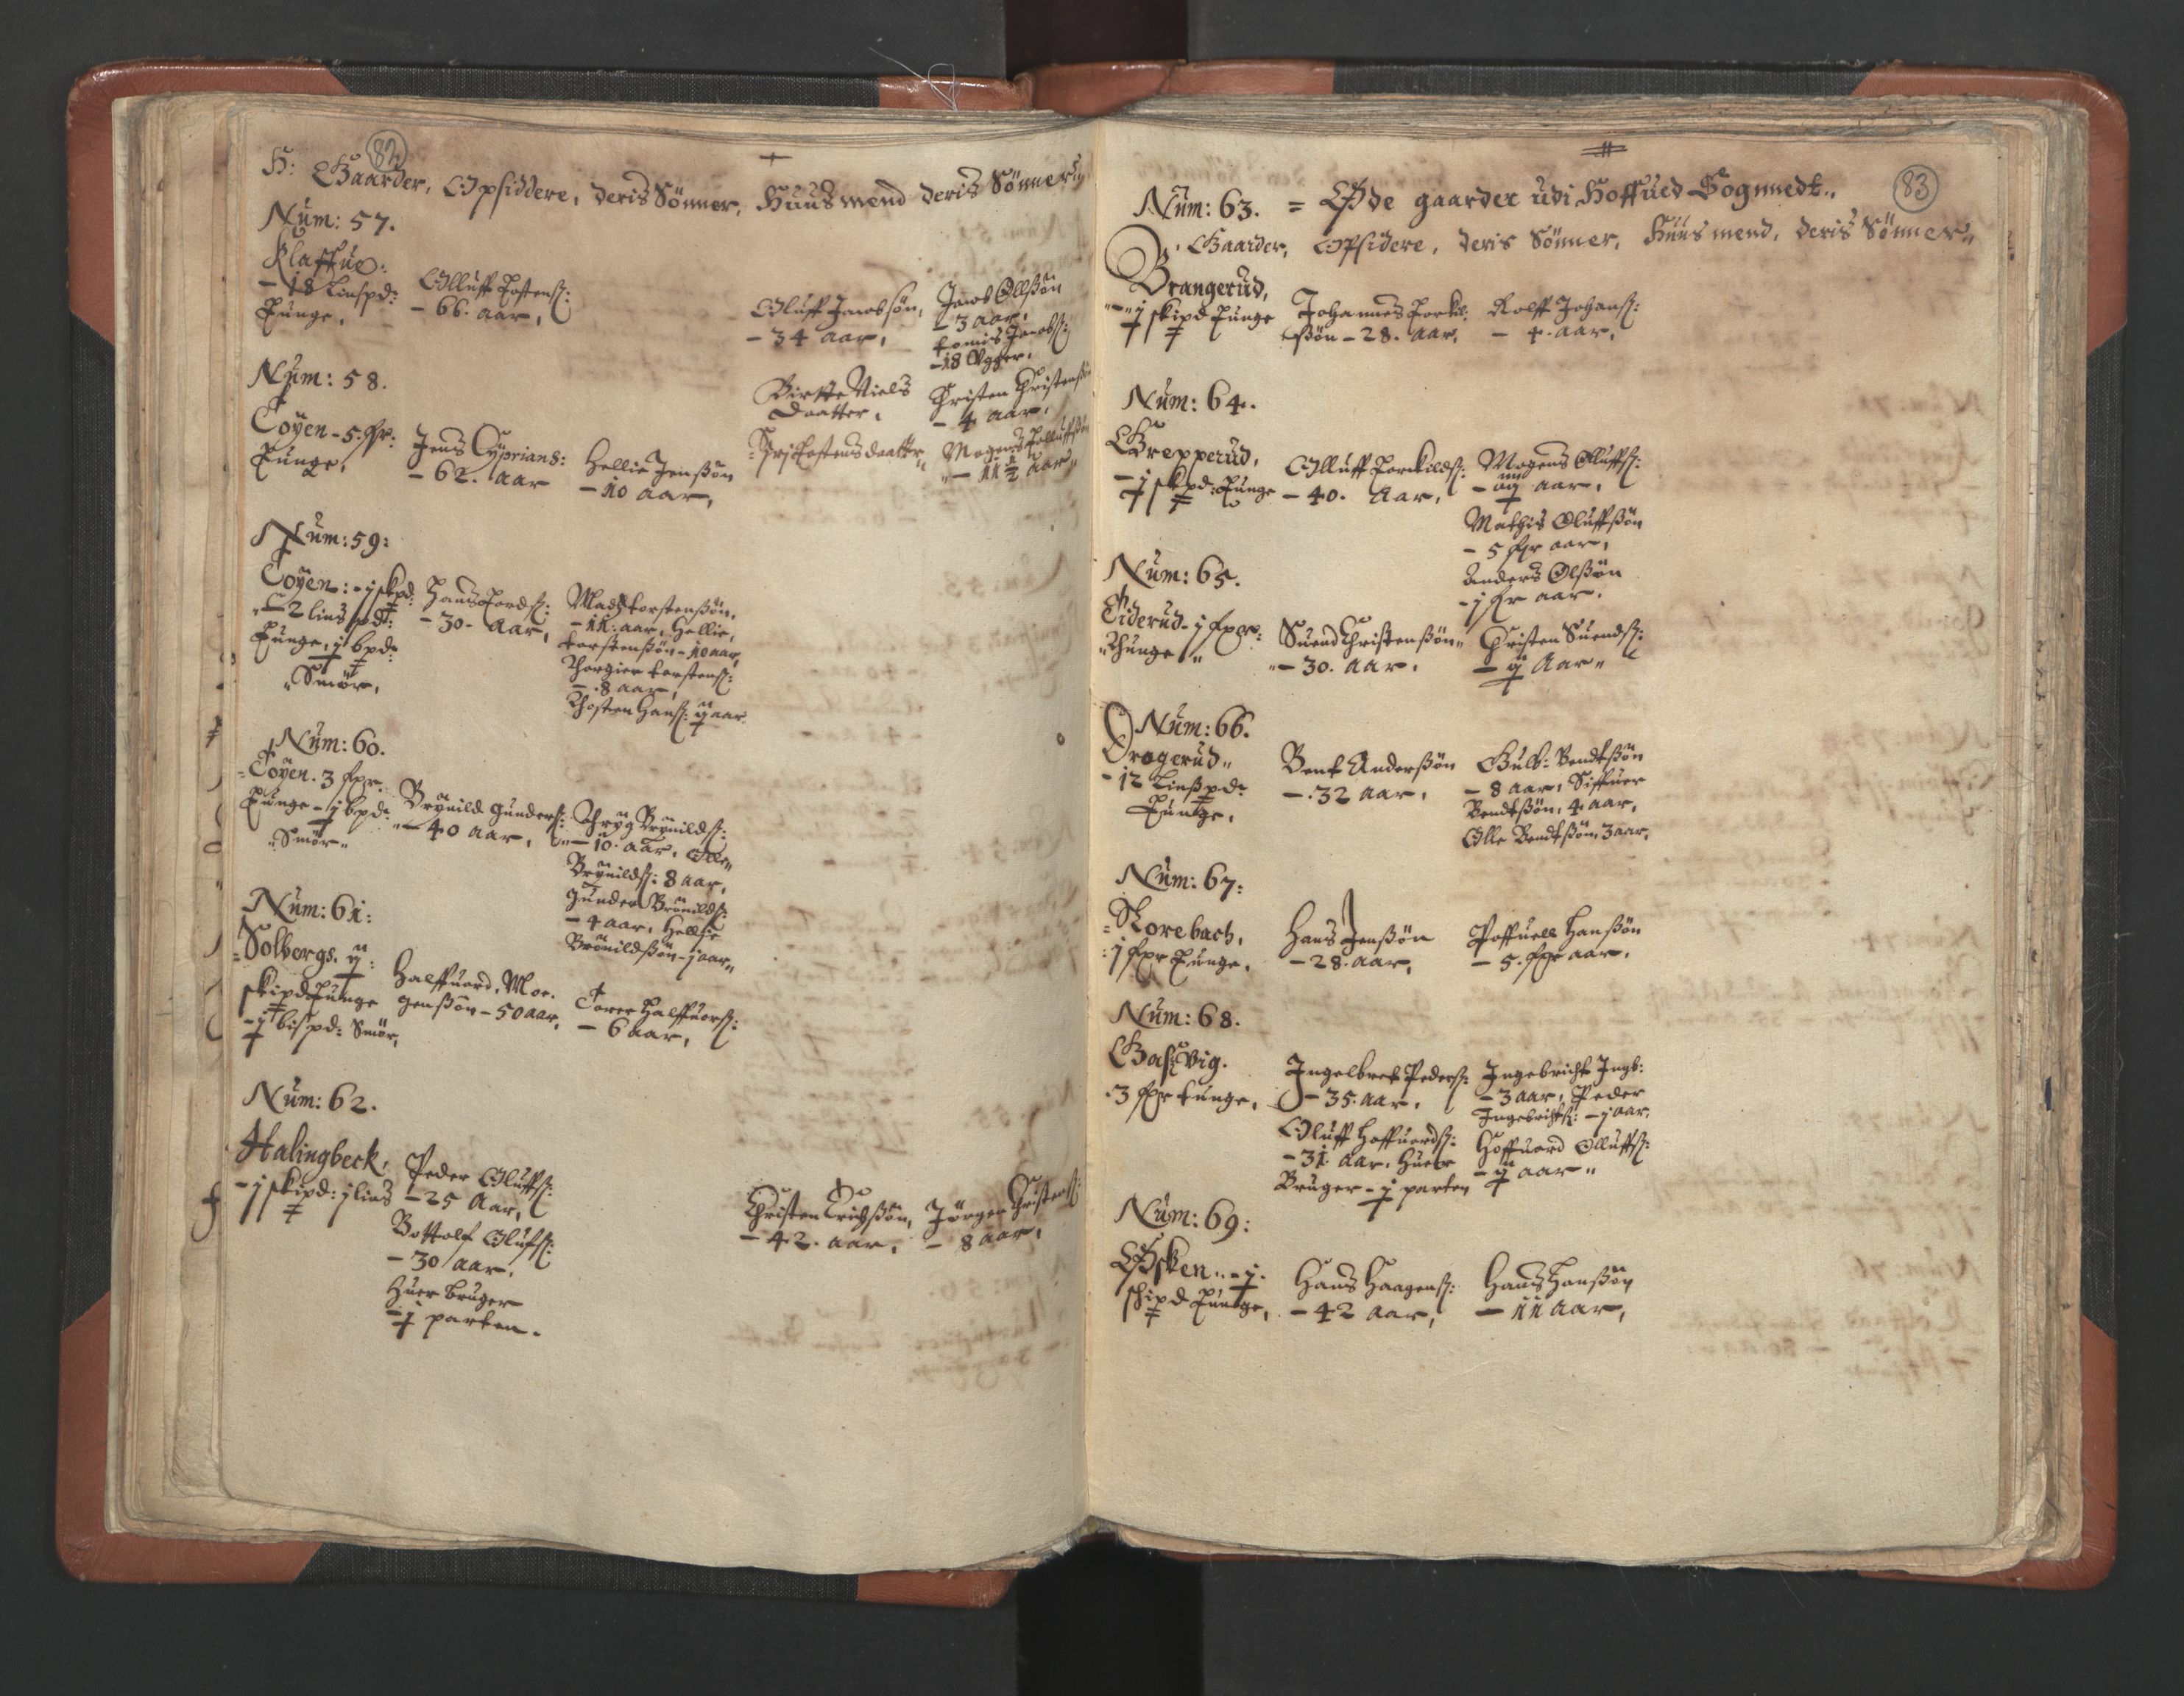 82
H: Gaarder, Opsiddere, deris Sönner, Huusmend deris Sönner
Num: 57.
Klaffue:
- 18 Lispd:
Tunge,
Olluff Tostens:
- 66. aar,
Oluff Jacobsön,
- 34 aar,
Jacob Ollsön
- 3 aar,
Tomis Jacobs:
- 18 Vgger.
Num: 58.
Töyen - 5. fr:
Tunge,
Jens Cyprians:
- 62. aar
Hellie Jensön
- 10 aar,
Birtte Niels
Daatter,
Christen Christensön
- 4 aar,
Tostensdaatter
Mogens
- 11 1/2 aar
Num: 59:
Töyen: - j skpd:
- 2 lispd:
Tunge, j bpd:
Smör,
Hans Tords:
- 30 - aar,
Mads torstensön,
- 11. aar, Hellie,
torstensön - 10 aar,
Thorgier torstens:
- 8 aar,
Thosten Hans: ij aar
Num: 60.
Töyen. 3 fr.
Tunge - j bpd:
Smör
Brynild Gunders:
- 40 aar,
Thryg Brynilds:
- 10. aar, Olle
Brynilds: 8 aar,
Gunder Brönilds:
- 4 aar, Hellie
Brönildsön - j aar
Num: 61:
Solbergs. ij:
skipd Tunge
- j bispd: Smör,
Halffuord, Mo-
gensön - 50 aar,
Torer Halffuors:
- 6 aar,
Num: 62.
Halingbeck,
- j skipd: j lis
Peder Oluffs:
- 25 Aar,
Bottolf Olufs:
- 30 aar.
Huer bruger
- j parten.
Christen Erichsön,
- 42. aar,
Jörgen Christens:
- 8 aar,
83
Num: 63. = Öde gaarder udi Hoffued Sognnedt
Gaarder, Opsidere, deris Sönner, Huusmend, deris Sönner
Brangerud,
- j skipd Tunge
Johannes Torkil-
sön - 28. aar,
Rolff Johans:
- 4. aar,
Num: 64.
Grepperud,
- j skpd: Tunge
Olluff Torkilds:
- 40. Aar,
Mogens Olluffs:
aar,
Mathis Oluffsön
- 5 fr aar,
Anders Olsön
- j fr aar.
Num: 65.
Tiderud - j fr:
Thunge
Suend Christensön
- 30. aar.
Christen Suends:
- ij Aar
Num: 66.
Dragerud
- 12 Lispd:
Tunge,
Bent Andersön
- 32 aar,
Gulb: Bendtsön
- 8 aar, Siffuer
Bendtsön, 4 aar,
Olle Bendtsön 3 aar,
Num: 67:
Skorebach,
- j fr Tunge,
Hans Jensön
- 28. aar,
Poffuell Hansön
- 5. fr aar,
Num: 68.
Gasvig.
- 3 fr tunge,
Jngelbret Peders:
- 35. aar,
Oluff Hoffuords:
- 31. aar, Huer
Bruger - j parten
Jngebricht Jngb:
- 3 aar, Peder
Jngebrichts: - j aar,
Hoffuord Olluffs:
- ij aar
Num: 69:
Ösken - j.
skipd Tunge,
Hans Haagens:
- 42 aar,
Hans Hansön
- 11 aar,